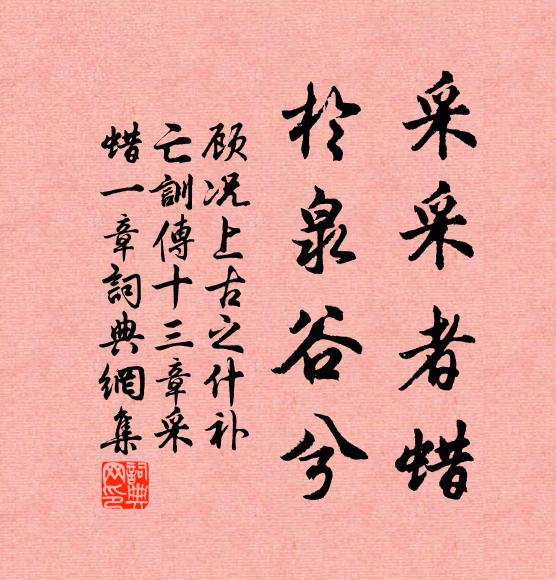 采采者蜡
於泉谷兮
顾况上古之什补
亡訓傳十三章采
蜡一章詞典網集
詞典
网印